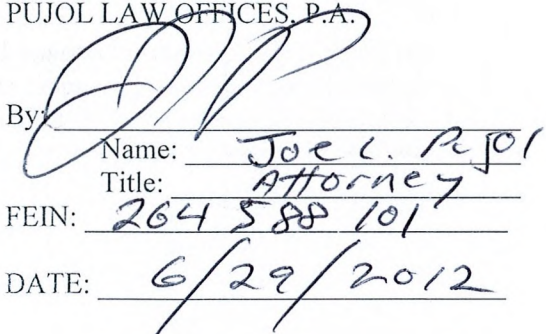 PUJOL LAW OFFICES, P.A.
By:
Name: Joe L. Pujol
Title: Attorney
FEIN: 264 588 101
DATE: 6/29/2012